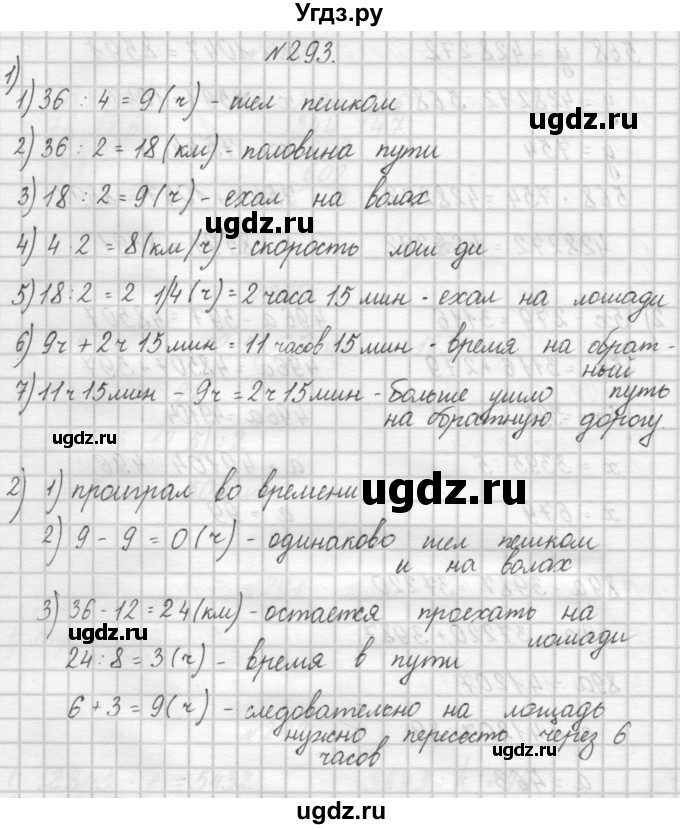 Угдз.ру
№293.
1)
1) 36 : 4 = 9 (ч) - шел пешком
ugdz.ru
2) 36 : 2 = 18 (км) - половина пути
3) 18 : 2 = 9 (ч) - ехал на волах
ugdz.ru
4) 4 2 = 8 (км/ч) - скорость лош ди
5) 18 : 2 = 2 1/4 (ч) = 2 часа 15 мин - ехал на лошади
6) 9ч + 2ч 15 мин = 11 часов 15 мин - время на обрат-
ный
7) 11ч 15мин - 9ч = 2ч 15мин - больше ушло путь
на обратную дорогу.
ugdz.ru
2) 1) проиграл во времени
ugdz.ru
2) 9 - 9 = 0 (ч) - одинаково шел пешком
и на волах
3) 36 - 12 = 24 (км) - остается проехать на
ugdz.ru
лошади
24 : 8 = 3 (ч) - время в пути
6 + 3 = 9 (ч) - следовательно на лощадь
нужно пересесть через 6
ugdz.ru
часов
ugdz.ru
ugdz.ru